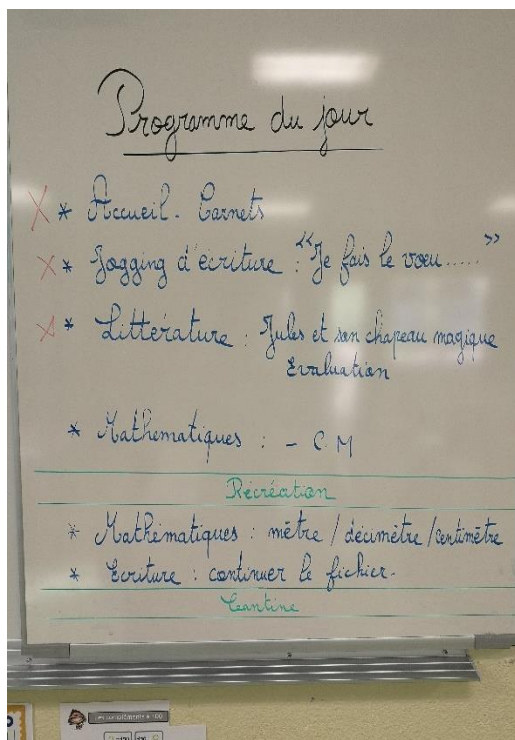 Programme du jour
X * Accueil - Carnets
X * Jogging d'écriture : "Je fais le vœu ..... "
X * Littérature : Jules et son chapeau magique
Evaluation
* Mathématiques : - C M
Récréation
* Mathématiques : mètre / décimètre / centimètre
* Ecriture : continuer le fichier.
Cantine
Les compléments à 100